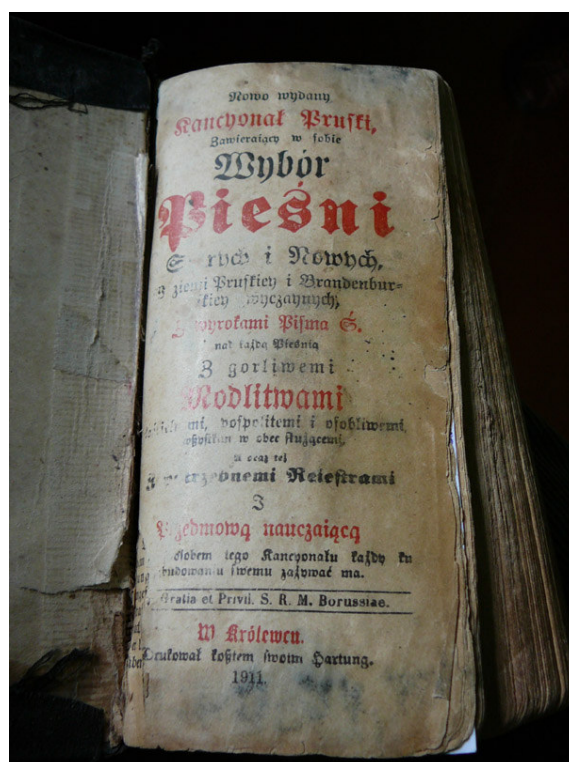 Nowo wydany
Kancyonał Pruski,
Zawieraiący w sobie
Wybór
Pieśni
i Nowych,
ziemi Pruskiey i Brandenbur=
skiey zwyczaynych,
Z wyrokami Pisma Ś.
nad każdą Pieśnią
Z gorliwemi
Modlitwami
pospolitemi i osobliwemi,
wszystkim w obec służącemi,
A oraz też
Reiestrami
I
Przedmową nauczaiącą
tego Kancyonału każdy ku
zbudowaniu swemu zażywać ma.
Gratia et Privil. S. R. M. Borussiae.
W Królewcu.
Drukował kosztem swoim Hartung.
1911.